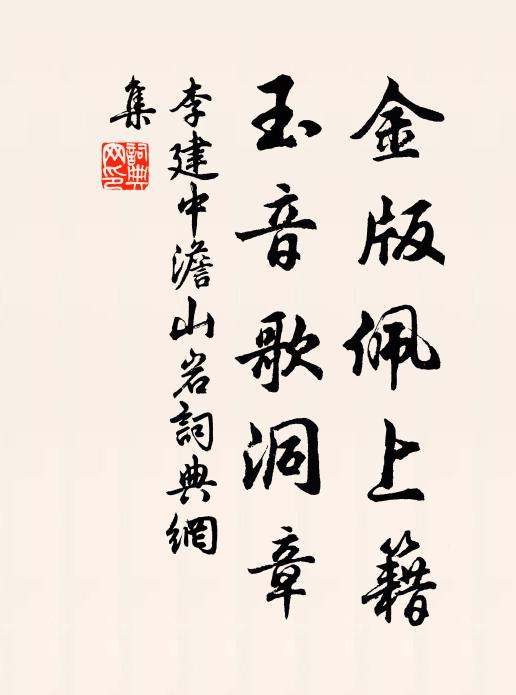 金版佩上籍
玉音歌洞章
李建中澹山岩詞典網
集
詞典網印